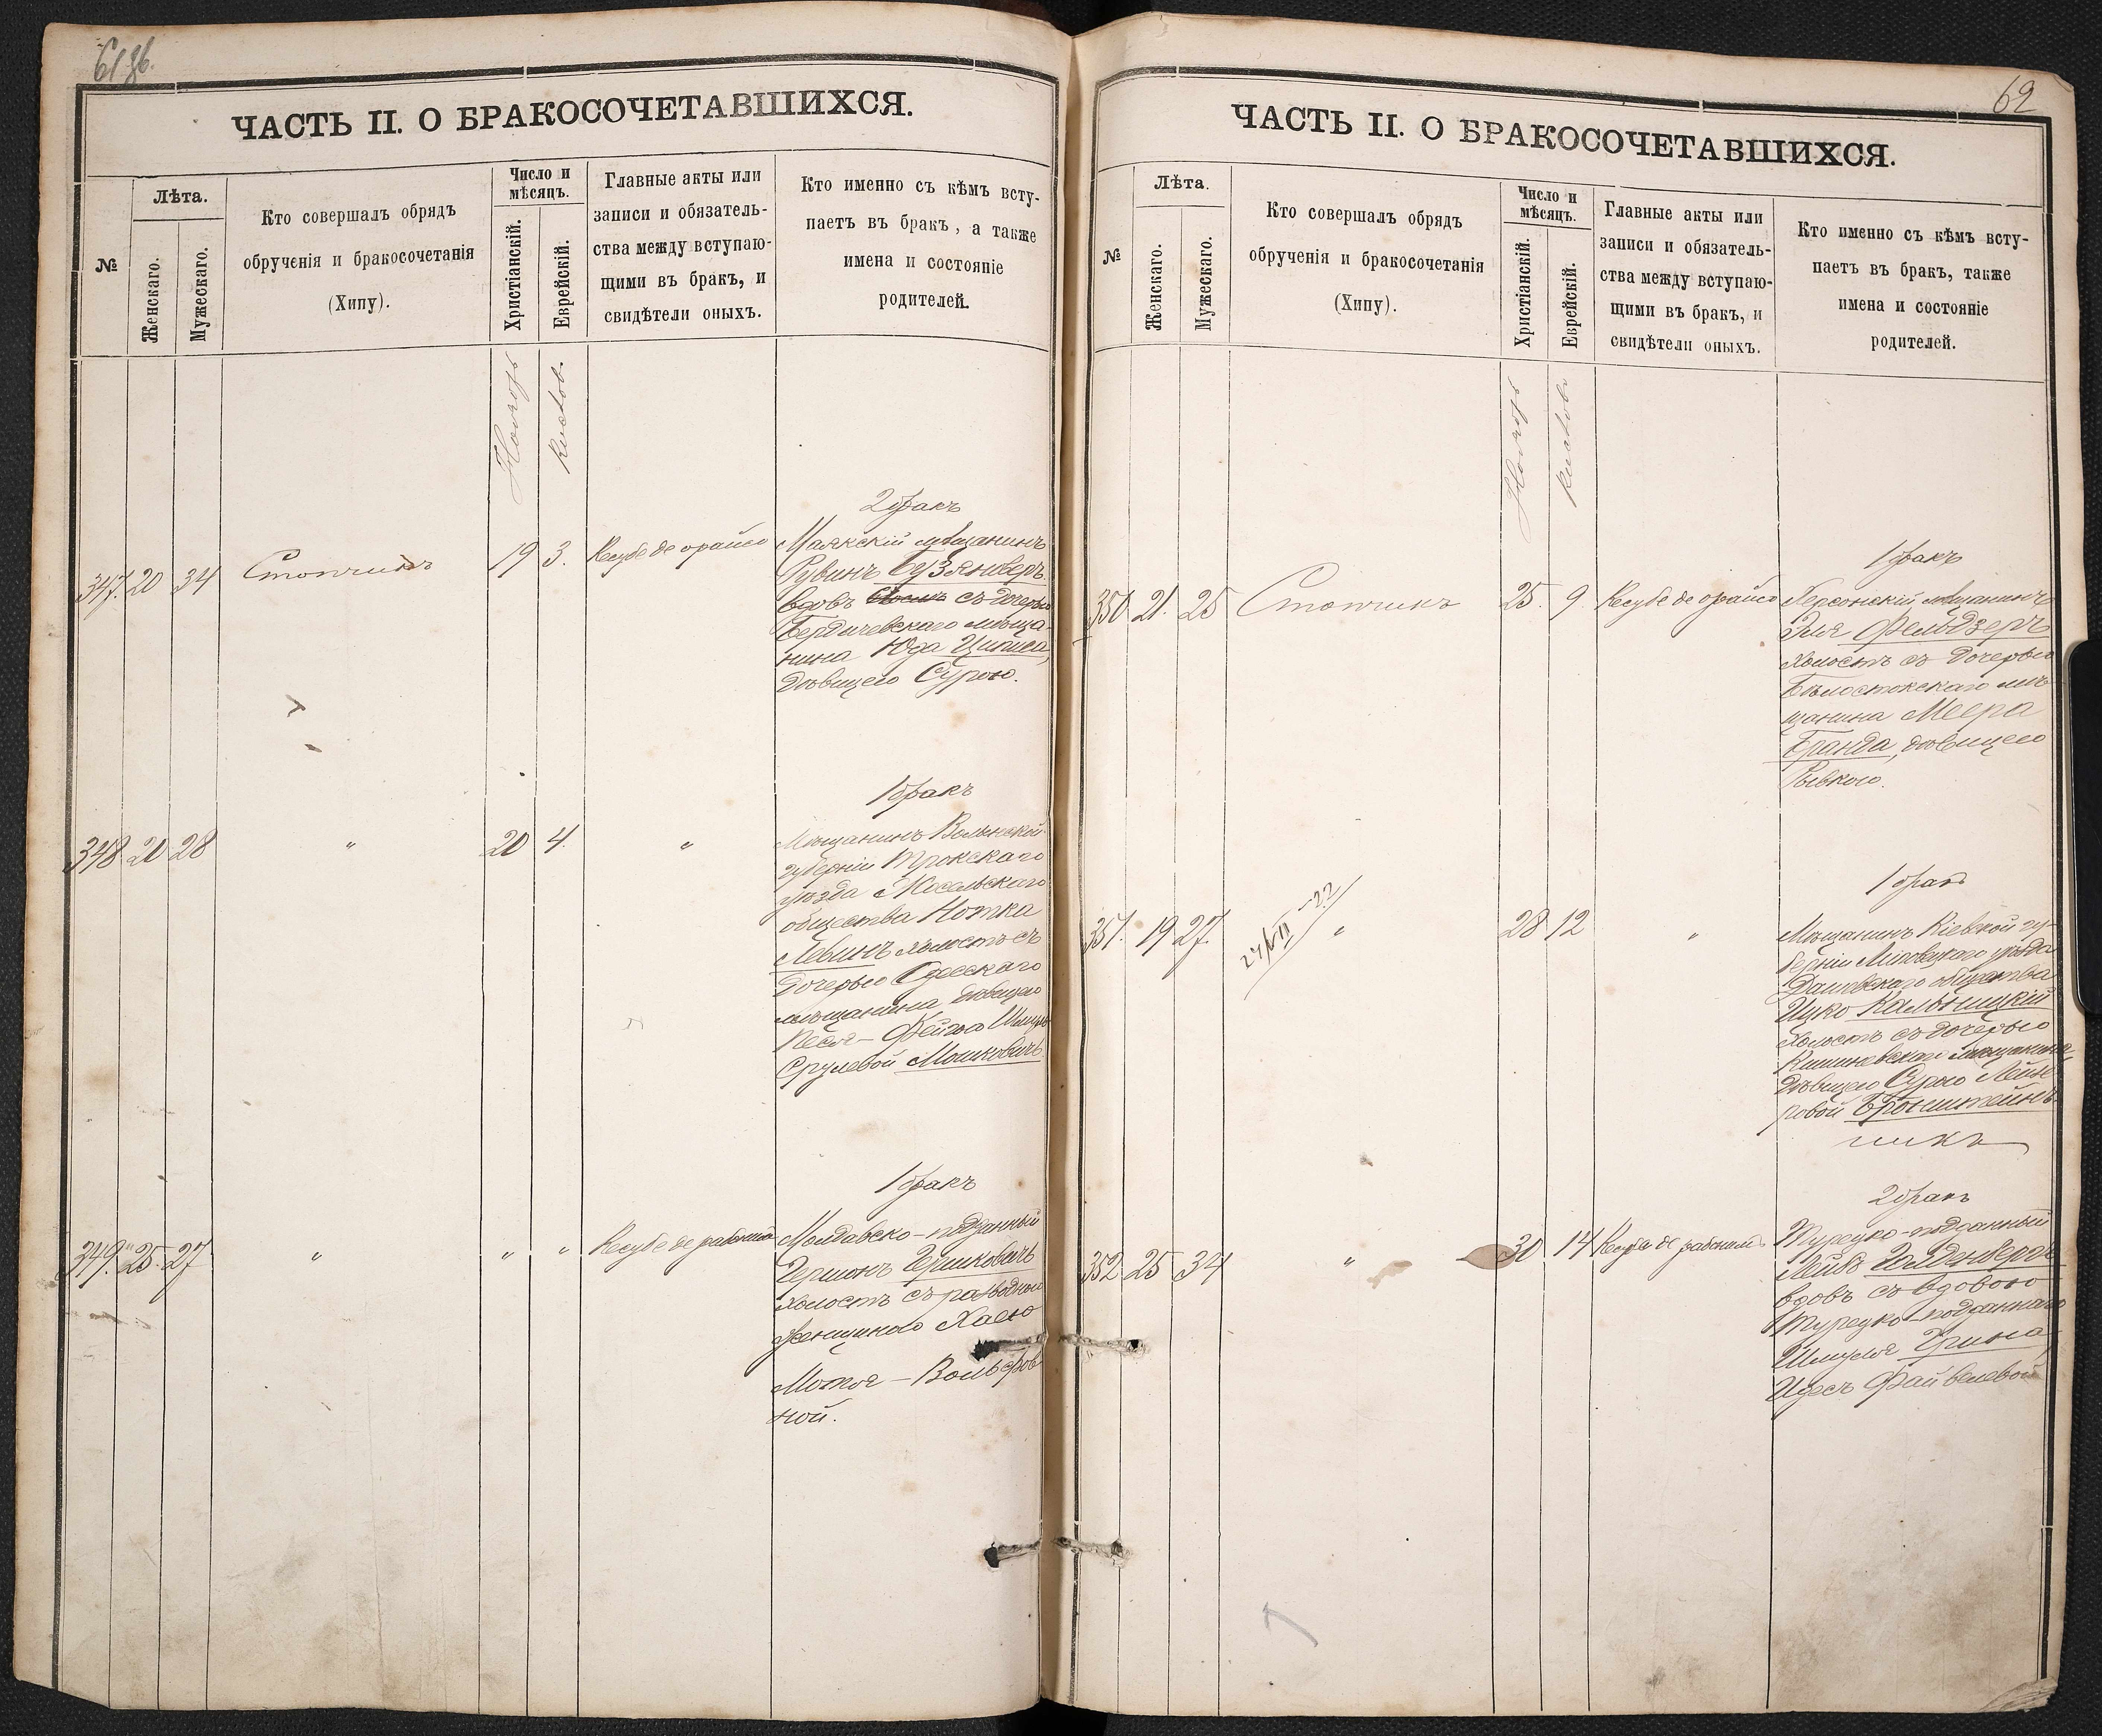 61 зв.
ЧАСТЬ II. О БРАКОСОЧЕТАВШИХСЯ.
№
Лѣта.
Женскаго.
Мужескаго.
Кто совершалъ обрядъ
обрученія и бракосочетанія
(Хипу).
Число и
мѣсяцъ.
Христіанскій.
Еврейскій.
Главные акты или
записи и обязатель-
ства между вступаю-
щими въ бракъ, и
свидѣтели оныхъ.
Кто именно съ кѣмъ всту-
паетъ въ бракъ, а также
имена и состояніе
родителей.
Ноябрь
Кислов.
2 бракъ
347. 20 34 Стопчикъ 19 3. Кесубе де орайсо
Маякскій мѣщанинъ
Рувинъ Бузянверъ
вдовъ съ дочерью
Бердичевскаго мѣща-
нина Юда Циписа,
дѣвицею Сурою.
1 бракъ
348 20 28 " 20 4. "
Мѣщанинъ Волынской
губерніи Трокскаго
уѣзда
общества Нотка
Левинъ холостъ съ
дочерью Одесскаго
мѣщанина, дѣвицею
Песя-Фейга Шмуль
Срулевой Мошковичъ
1 бракъ
349. 25. 27 " " " Кесубе де рабонон
Молдавско-подданный
Гершонъ Гершковичъ
холостъ съ разводной
женщиною Хаею
Мотя-Вольфов-
ной.
62
ЧАСТЬ II. О БРАКОСОЧЕТАВШИХСЯ.
№
Лѣта.
Женскаго.
Мужескаго.
Кто совершалъ обрядъ
обрученія и бракосочетанія
(Хипу).
Число и
мѣсяцъ.
Христіанскій.
Еврейскій.
Главные акты или
записи и обязатель-
ства между вступаю-
щими въ бракъ, и
свидѣтели оныхъ.
Кто именно съ кѣмъ всту-
паетъ въ бракъ, также
имена и состояніе
родителей.
Ноябрь
Кислов
1 бракъ
350 21. 25 Стопчикъ 25. 9. Кесубе де орайсо
Херсонскій мѣщанинъ
Эля Фельдзеръ
холостъ съ дочерью
Бѣлостокскаго мѣ-
щанина Меера
Бранда, дѣвицею
Ривкою.
1 бракъ
351. 19 27. " 28 12 "
Мѣщанинъ Кіевской гу-
берніи Липовецкаго уѣзда
Дашевскаго общества
Ицко Кальницкій
холостъ съ дочерью
Кишиневскаго мѣщанина,
дѣвицею Сурою Лейзе-
ровой Бронштейнъ
чикъ
2 бракъ
352 25 34 " 30 14 Кесубе де рабонон
Турецко-подданный
Лейбъ
вдовъ съ вдовою
Турецко-подданнаго
Шмуля Грина,
Идесъ Файвелевой